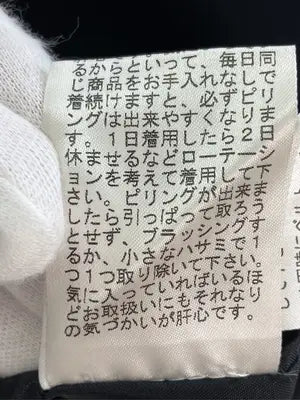 るからといって、毎日同
じ商品をお手入れなしで
着続けますと、必ずピリ
ングは出来やすくなりま
す。1日着用したら2日
休ませるなどローテーシ
ョンを考えて着用して下
さい。ピリングが出来ま
したら引っぱって取ろう
とせず、ブラッシングす
るか、小さなハサミで1
つ1つ取り除いて下さい。
気に入っていればいるほ
どお取扱いにもそれなり
のお気づかいが肝心です。